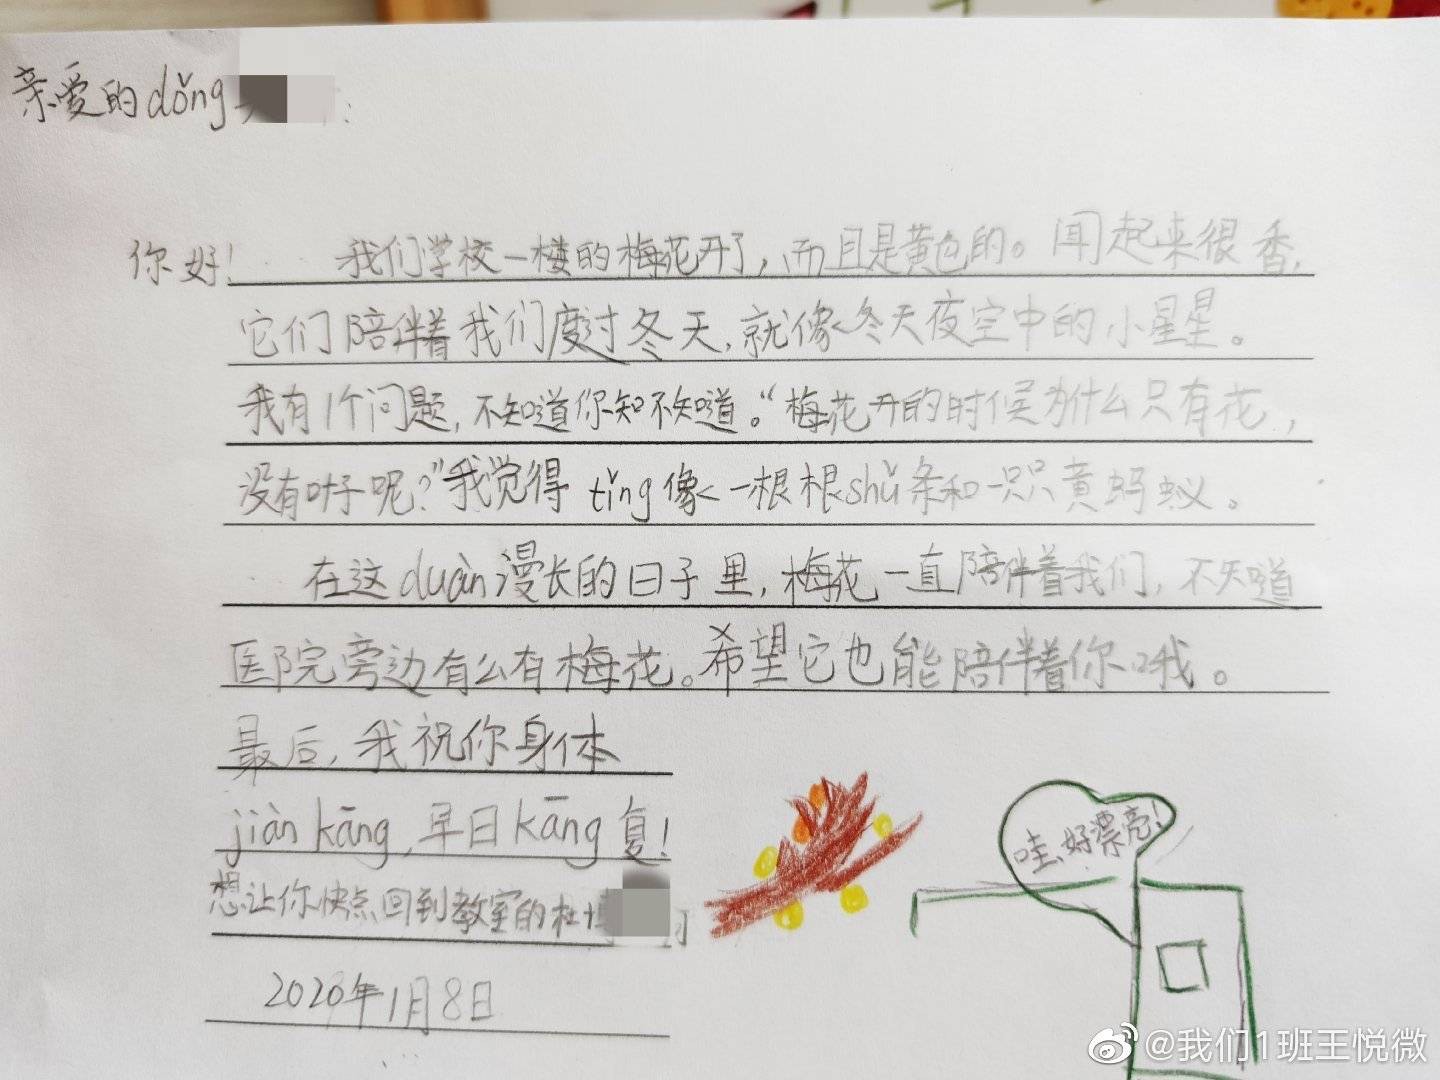 亲爱的dǒng
你好！ 我们学校一楼的梅花开了，而且是黄色的。闻起来很香，
它们陪伴着我们度过冬天，就像冬天夜空中的小星星。
我有1个问题，不知道你知不知道。“梅花开的时候为什么只有花，
没有叶子呢？”我觉得tǐng像一根根shǔ条和一只只黄蚂蚁。
在这duàn漫长的日子里，梅花一直陪伴着我们，不知道
医院旁边有么有梅花。希望它也能陪伴着你哦。
最后，我祝你身体
jiàn kāng，早日kāng复！
想让你快点回到教室的杜
2020年1月8日
哇，好漂亮！
@我们1班王悦微